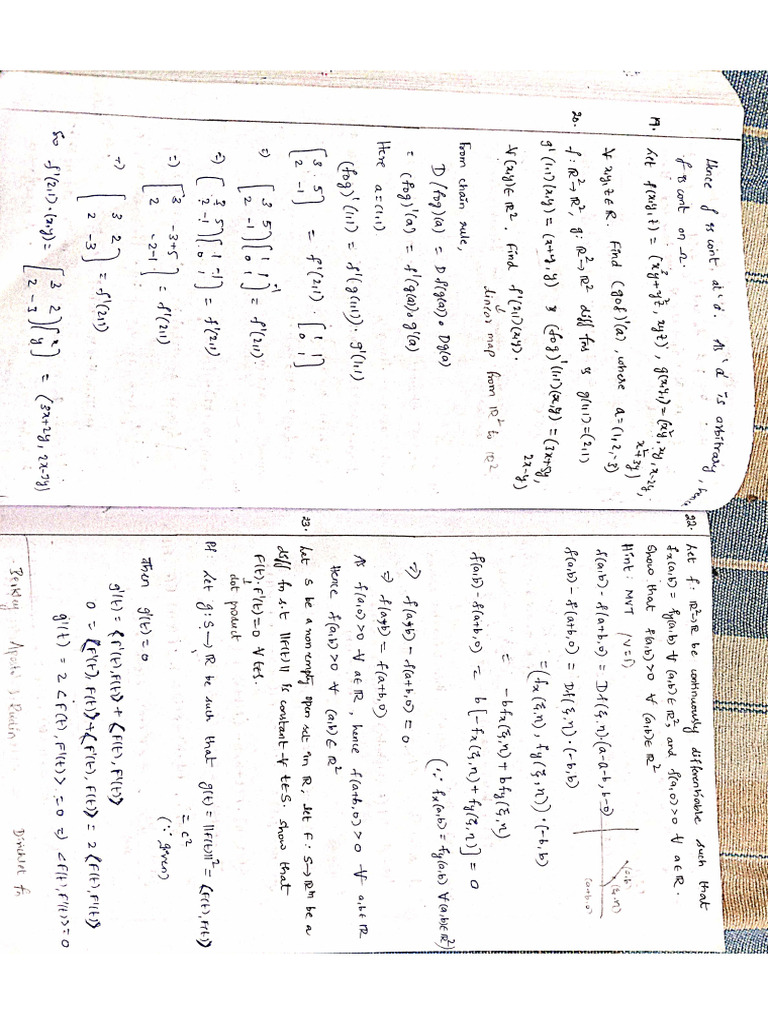 Hence f is cont. at 'a'. As 'a' is arbitrary,
f is cont on Ω.
19. Let f(x,y,z) = (x²y+y²z, xyz), g(x,y) = (x²y, xy, x-2y, x²+3y)
∀ x,y,z ∈ ℝ. Find (gof)'(a), where a=(1,2,-3)
20. f: ℝ²→ℝ², g: ℝ²→ℝ² diff fns s g(1,1)=(2,1)
g'(1,1)(x,y) = (x+y, y) & (fog)'(1,1)(x,y) = (3x+5y, 2x-y)
∀ (x,y) ∈ ℝ². Find f'(2,1)(x,y).
↓
linear map from ℝ² to ℝ²
From chain rule,
D(fog)(a) = Df(g(a)) ∘ Dg(a)
= (fog)'(a) = f'(g(a)) ∘ g'(a)
Here a=(1,1)
(fog)'(1,1) = f'(g(1,1)) · g'(1,1)
[3 5; 2 -1] = f'(2,1) · [1 1; 0 1]
⇒ [3 5; 2 -1][1 1; 0 1]⁻¹ = f'(2,1)
⇒ [3 5; 2 -1][1 -1; 0 1] = f'(2,1)
⇒ [3 -3+5; 2 -2-1] = f'(2,1)
⇒ [3 2; 2 -3] = f'(2,1)
So f'(2,1)·(x,y) = [3 2; 2 -3][x; y] = (3x+2y, 2x-3y)
22. Let f: ℝ²→ℝ be continuously differentiable such that
fx(a,b) = fy(a,b) ∀ (a,b)∈ℝ², and f(a,0)>0 ∀ a∈ℝ.
Show that f(a,b)>0 ∀ (a,b)∈ℝ²
Hint: MVT (V=1)
(a,b)
(ξ,η)
(a+b,0)
f(a,b) - f(a+b,0) = Df(ξ,η)·(a-a-b, b-0)
f(a,b) - f(a+b,0) = Df(ξ,η)·(-b,b)
= (fx(ξ,η), fy(ξ,η))·(-b,b)
= -bfx(ξ,η) + bfy(ξ,η)
f(a,b) - f(a+b,0) = b[-fx(ξ,η) + fy(ξ,η)] = 0
(∵ fx(a,b) = fy(a,b) ∀(a,b)∈ℝ²)
⇒ f(a,b) - f(a+b,0) = 0
⇒ f(a,b) = f(a+b,0)
As f(a,0)>0 ∀ a∈ℝ, hence f(a+b,0)>0 ∀ a,b∈ℝ
Hence f(a,b)>0 ∀ (a,b)∈ℝ²
23. Let S be a nonempty open set in ℝ, let F: S→ℝᵐ be a
diff fn s.t ||F(t)|| is constant ∀ t∈S. Show that
F(t)·F'(t)=0 ∀ t∈S.
↓
dot product
Pf: Let g: S→ℝ be such that g(t) = ||F(t)||² = ⟨F(t),F(t)⟩
= c²
(∵ given)
Then g'(t)=0
g'(t) = ⟨F'(t),F(t)⟩ + ⟨F(t),F'(t)⟩
0 = ⟨F'(t),F(t)⟩ + ⟨F'(t),F(t)⟩ = 2⟨F(t),F'(t)⟩
g'(t) = 2⟨F(t),F'(t)⟩ = 0 ⇒ ⟨F(t),F'(t)⟩ = 0